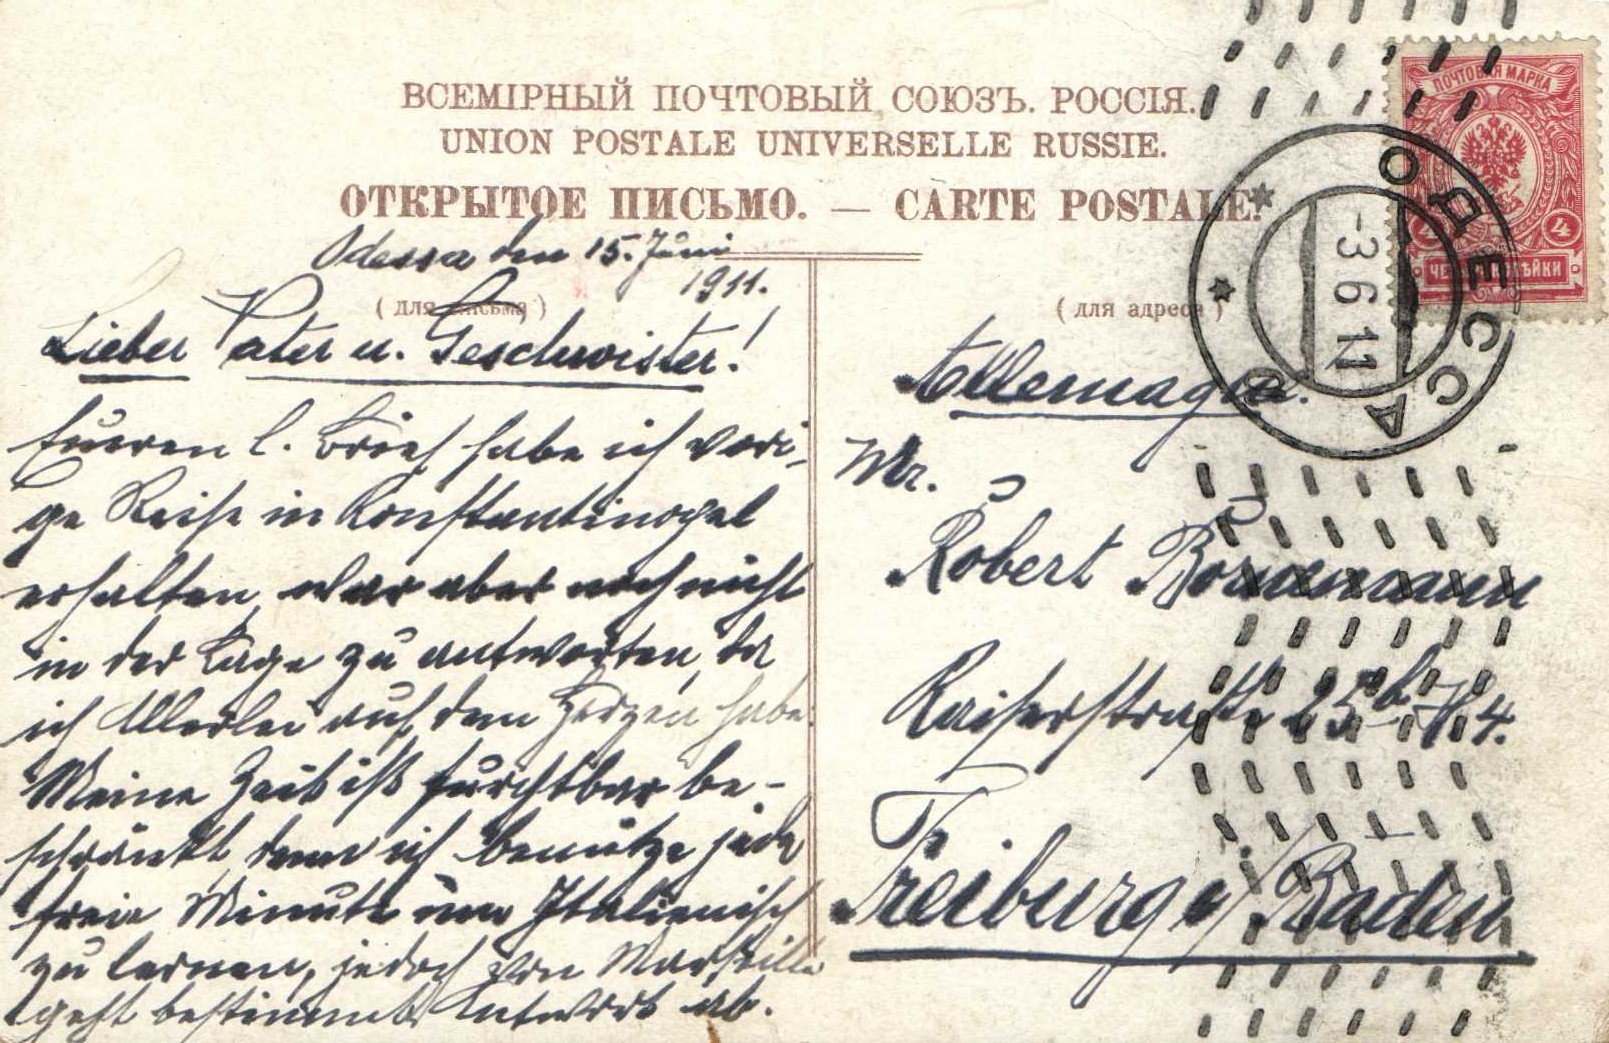 ВСЕМІРНЫЙ ПОЧТОВЫЙ СОЮЗЪ. РОССІЯ.
UNION POSTALE UNIVERSELLE RUSSIE.
ОТКРЫТОЕ ПИСЬМО. — CARTE POSTALE.
ПОЧТОВАЯ МАРКА
4 4
ОДЕССА
-3 6 11
Odessa den 15. Juni
1911.
(для письма)
(для адреса)
Lieber Vater u. Geschwister!
Eueren l. Brief habe ich vori-
ge Reise in Konstantinopel
erhalten, war aber noch nicht
in der Lage zu antworten, da
ich Allerlei auf dem Herzen habe.
Meine Zeit ist furchtbar be-
schränkt, denn ich benütze jede
freie Minute um Italienisch
zu lernen, jedoch von Marseille
geht bestimmt Antwort ab.
Allemagne.
Mr.
Robert Bornemann
Kaiserstraße 25b H 4.
Freiburg i/Baden